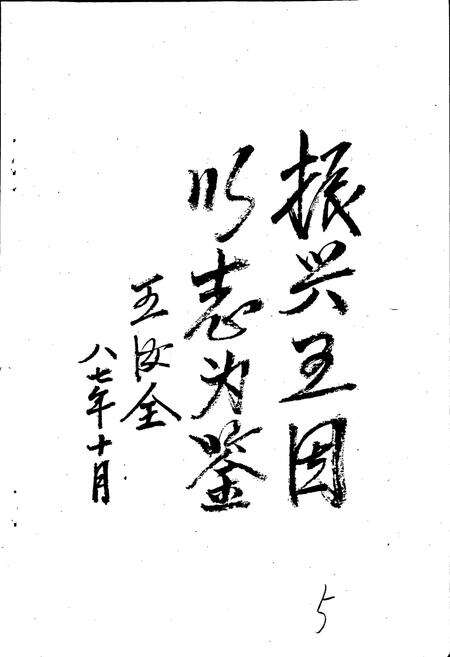 振兴王因
以志为鉴
王汝全
八七年十月
5